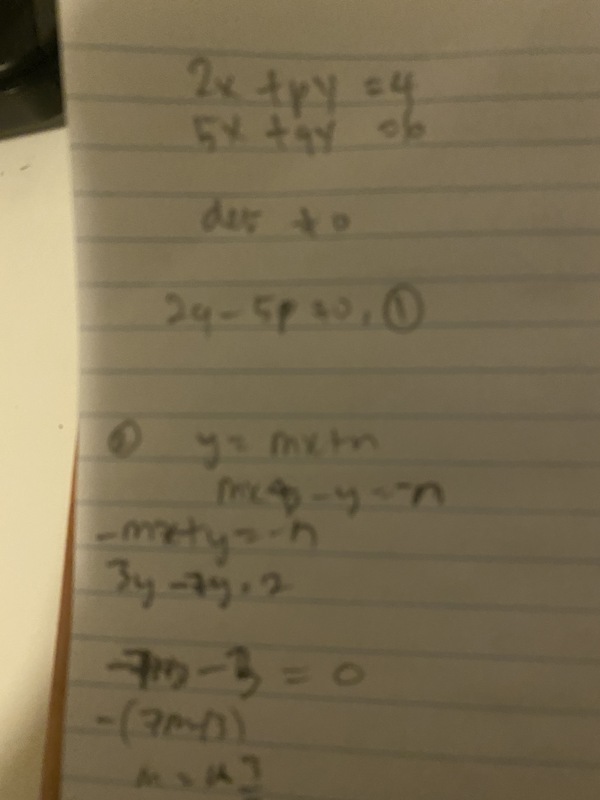 2x + py = 4
5x + qy = 6
det ≠ 0
2q - 5p = 0, ①
y = mx + n
mx - y = -n
-mx + y = -n
3y - 7y = 2
-7m - 3 = 0